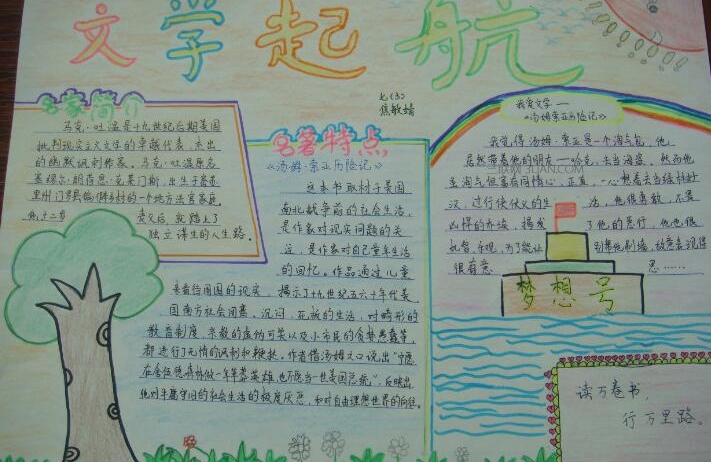 文学起航
七(3)
焦敏婧
名家简介
马克·吐温是十九世纪后期美国
批判现实主义文学的卓越代表，杰出
的幽默讽刺作家。马克·吐温原名
塞缪尔·朗荷恩·克莱门斯，出生于密苏
里州门罗县佛
一个地方法官家庭，
他十二岁
丧父后，就踏上了
独立谋生的人生路。
名著特点
《汤姆·索亚历险记》
这本书取材于美国
南北战争前的社会生活，
是作家对现实问题的关
注，是作家对自己童年生活
的回忆。作品通过儿童
的现实，揭示了十九世纪五六十年代美
国南方社会闭塞、沉闷、死板的生活，对畸形的
教育制度，宗教的虚伪可笑以及小市民的贪婪愚蠢等，
都进行了无情的讽刺和鞭挞。作者借汤姆之口说出“宁愿
在舍伍德森林做一年绿林英雄，也不愿当一世美国总统”，反映出
他对平庸守旧的社会生活的极度厌恶，和对自由理想世界的向往。
我爱文学——
《汤姆·索亚历险记》
我觉得汤姆·索亚是一个淘气包，他
居然带着他的朋友——哈克，去当海盗，然而他
虽淘气但富有同情心，正直，一心想着去当绿林好
汉，过行侠仗义的生活，他很勇敢，不畏
凶悍的乔埃，揭发了他的恶行，他也很
机智、乐观，为了能让别帮他刷墙，故意表现得
很有意思……
梦想号
读万卷书，
行万里路。